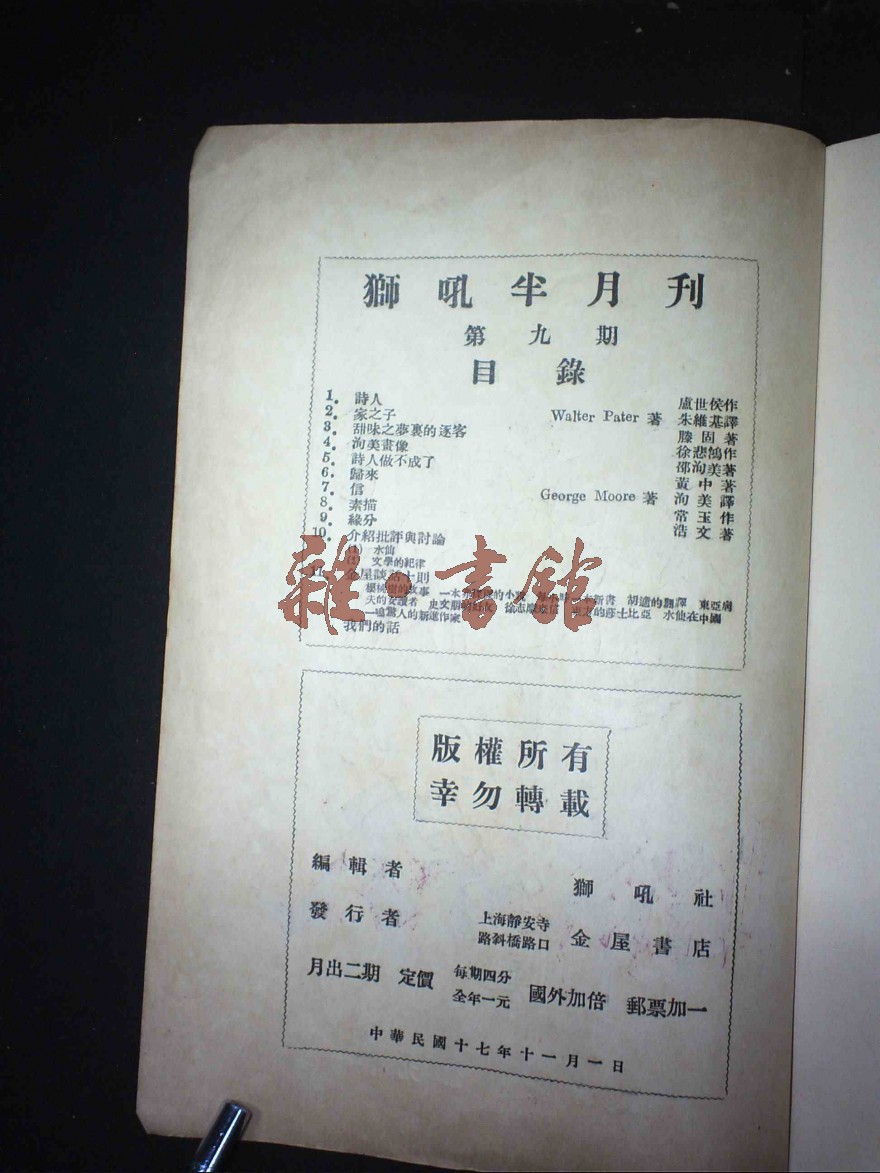 獅吼半月刊
第九期
目錄
1. 詩人 盧世侯作
2. 家之子 Walter Pater 著 朱維基譯
3. 甜味之夢裏的逐客 滕固著
4. 洵美畫像 徐悲鴻作
5. 詩人做不成了 邵洵美著
6. 歸來 黃中著
7. 信 George Moore 著 洵美譯
8. 素描 常玉作
9. 緣分 浩文著
10. 介紹批評與討論
(1) 水仙
(2) 文學的紀律
11. 金屋談話十則
的故事 一本 的小說 新書 胡適的翻譯 東亞病
夫的女讀者 史文朋的 徐志摩 的莎士比亞 水仙在中國
一鳴驚人的新進作家
我們的話
雜書館
版權所有
幸勿轉載
編輯者 獅吼社
發行者 上海靜安寺路斜橋路口 金屋書店
月出二期 定價 每期四分 全年一元 國外加倍 郵票加一
中華民國十七年十一月一日